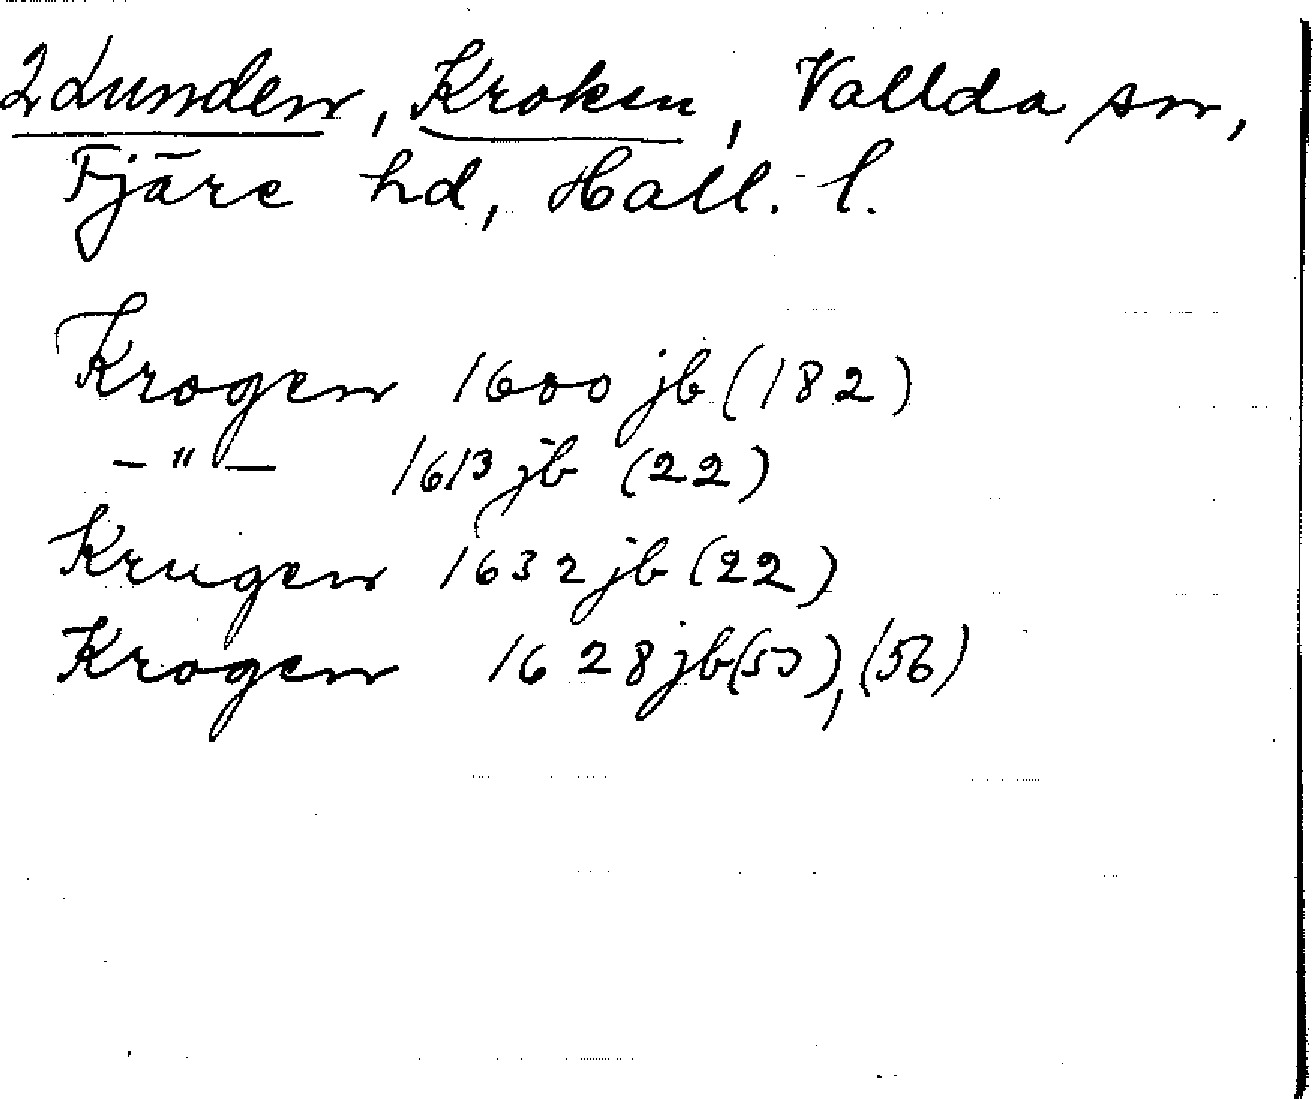 2 Lunden, Kroken, Vallda sn,
Fjäre hd, Hall. l.
Krogen 1600 jb (182)
– " – 1613 jb (22)
Krugen 1632 jb (22)
Krogen 1628 jb (53), (56)